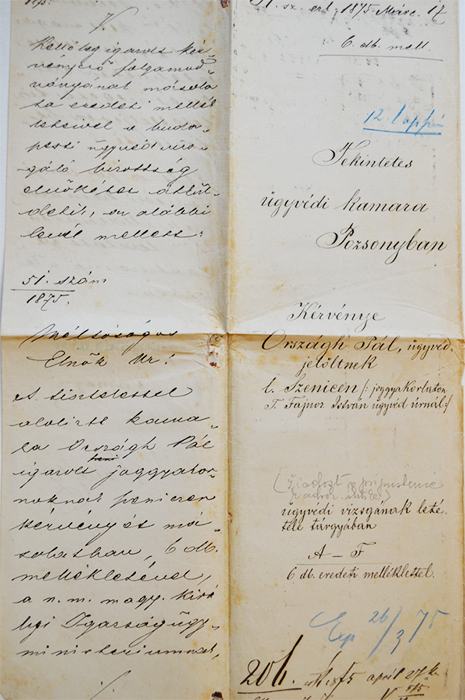 Kellőleg igazolt kér-
vényező folyamod-
ványának másola
ta eredeti mellék
leteivel a buda-
pesti ügyvédvizs-
gáló bizottság
elnökéhez áttüt-
detik, az alábbi
levél mellett:
51. szám
1875.
Méltóságos
Elnök Úr!
A tisztelettel
alólírt kama-
ra Országh Pál
igazolt joggyakor-
noknak
kérvényét má-
solatban, 6 db.
mellékletével,
a n. m. magy. kirá
lyi Igazságügy-
miniteriumnak,
sz. érk. 1875. Márc. 17
6. db. mell.
12. lap
Tekintetes
ügyvédi kamara
Pozsonyban
Kérvénye
Országh Pál, ügyvéd-
jelöltnek
b. Szenicén /: joggyakorlaton
T. Fajnor István ügyvéd úrnál :/
ügyvédi vizsgának leté-
tele tárgyában
A – F
6 db. eredeti melléklettel.
Exp 26/3 75
206.
april 27